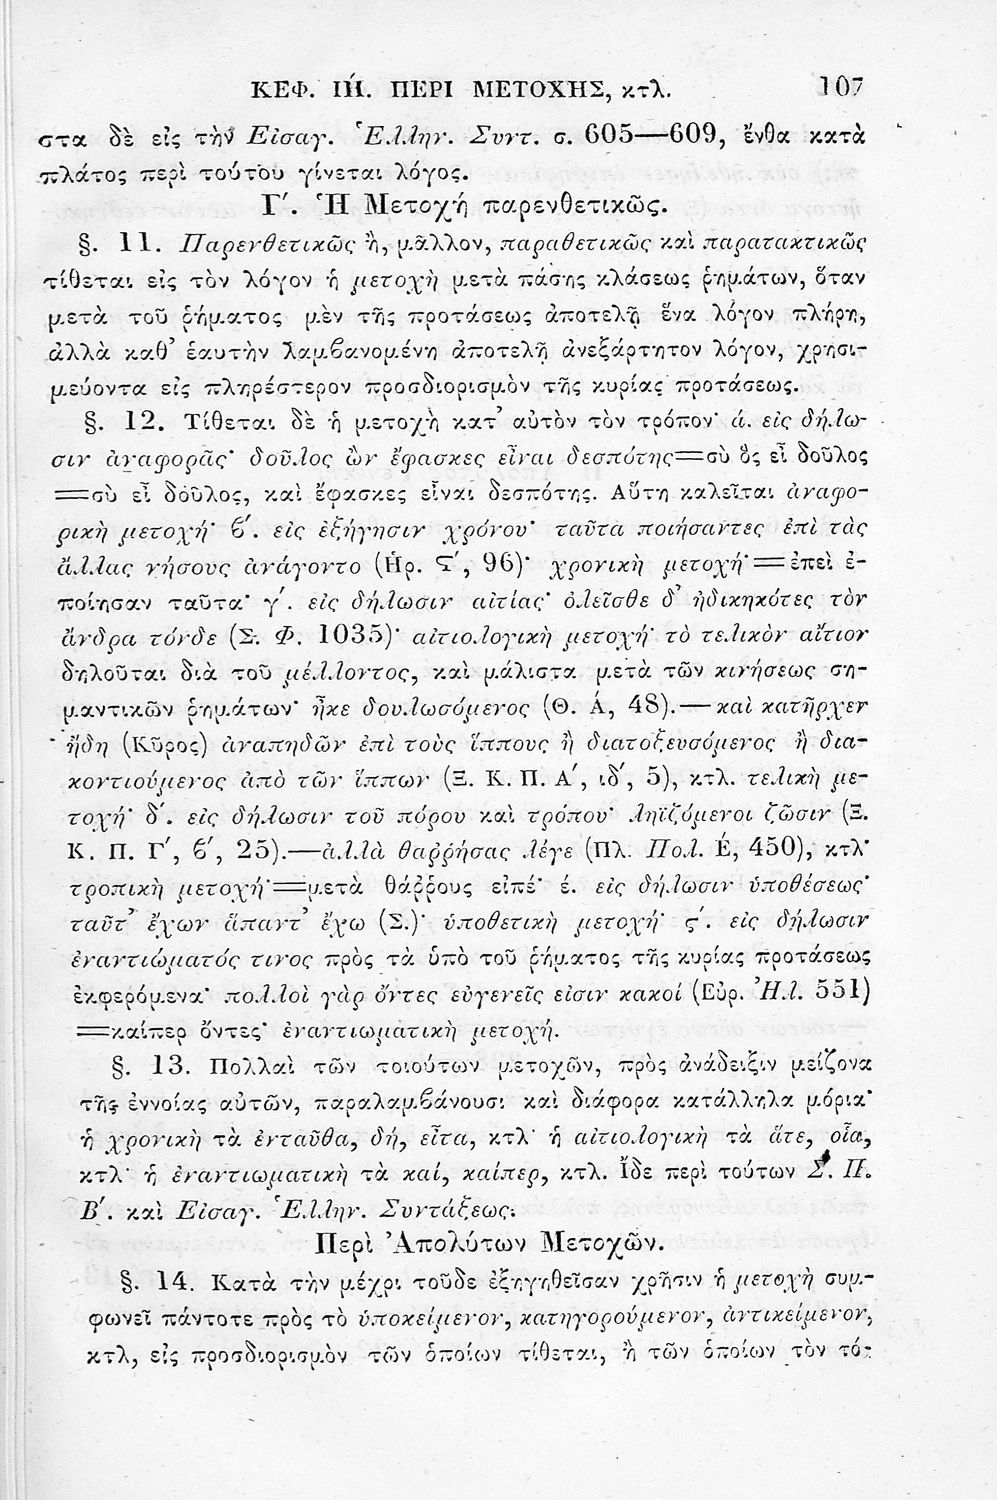 ΚΕΦ. ΙΗ. ΠΕΡΙ ΜΕΤΟΧΗΣ, κτλ. 107
στα δὲ εἰς τὴν Εἰσαγ. Ἑλλην. Συντ. σ. 605—609, ἔνθα κατὰ
πλάτος περὶ τούτου γίνεται λόγος.
Γ΄. Ἡ Μετοχή παρενθετικῶς.
§. 11. Παρενθετικῶς ἢ, μᾶλλον, παραθετικῶς καὶ παρατακτικῶς
τίθεται εἰς τὸν λόγον ἡ μετοχὴ μετὰ πάσης κλάσεως ῥημάτων, ὅταν
μετὰ τοῦ ῥήματος μὲν τῆς προτάσεως ἀποτελῇ ἕνα λόγον πλήρη,
ἀλλὰ καθ’ ἑαυτὴν λαμβανομένη ἀποτελῇ ἀνεξάρτητον λόγον, χρησι-
μεύοντα εἰς πληρέστερον προσδιορισμὸν τῆς κυρίας προτάσεως.
§. 12. Τίθεται δὲ ἡ μετοχὴ κατ’ αὐτὸν τὸν τρόπον· ά. εἰς δήλω-
σιν ἀναφορᾶς· δοῦλος ὢν ἔφασκες εἶναι δεσπότης=σὺ ὃς εἶ δοῦλος
=σὺ εἶ δοῦλος, καὶ ἔφασκες εἶναι δεσπότης. Αὕτη καλεῖται ἀναφο-
ρικὴ μετοχή· β΄. εἰς ἐξήγησιν χρόνου· ταῦτα ποιήσαντες ἐπὶ τὰς
ἄλλας νήσους ἀνάγοντο (Ἡρ. Ϛ΄, 96)· χρονικὴ μετοχή·=ἐπεὶ ἐ-
ποίησαν ταῦτα· γ΄. εἰς δήλωσιν αἰτίας· ὀλεῖσθε δ’ ἠδικηκότες τὸν
ἄνδρα τόνδε (Σ. Φ. 1035)· αἰτιολογικὴ μετοχή· τὸ τελικὸν αἴτιον
δηλοῦται διὰ τοῦ μέλλοντος, καὶ μάλιστα μετὰ τῶν κινήσεως ση-
μαντικῶν ῥημάτων· ἧκε δουλωσόμενος (Θ. Ά, 48).—καὶ κατῆρχεν
ἤδη (Κῦρος) ἀναπηδῶν ἐπὶ τοὺς ἵππους ἢ διατοξευσόμενος ἢ δια-
κοντιούμενος ἀπὸ τῶν ἵππων (Ξ. Κ. Π. Α΄, ιδ΄, 5), κτλ. τελικὴ με-
τοχή· δ΄. εἰς δήλωσιν τοῦ πόρου καὶ τρόπου· ληϊζόμενοι ζῶσιν (Ξ.
Κ. Π. Γ΄, β΄, 25).—ἀλλὰ θαῤῥήσας λέγε (Πλ. Πολ. Έ, 450), κτλ·
τροπικὴ μετοχή·=μετὰ θάῤῥους εἰπέ· έ. εἰς δήλωσιν ὑποθέσεως·
ταῦτ’ ἔχων ἅπαντ’ ἔχω (Σ.)· ὑποθετικὴ μετοχή· ς΄. εἰς δήλωσιν
ἐναντιώματός τινος πρὸς τὰ ὑπὸ τοῦ ῥήματος τῆς κυρίας προτάσεως
ἐκφερόμενα· πολλοὶ γὰρ ὄντες εὐγενεῖς εἰσιν κακοί (Εὐρ. Ἠλ. 551)
=καίπερ ὄντες· ἐναντιωματικὴ μετοχή.
§. 13. Πολλαὶ τῶν τοιούτων μετοχῶν, πρὸς ἀνάδειξιν μείζονα
τῆς ἐννοίας αὐτῶν, παραλαμβάνουσι καὶ διάφορα κατάλληλα μόρια·
ἡ χρονικὴ τὰ ἐνταῦθα, δή, εἶτα, κτλ· ἡ αἰτιολογικὴ τὰ ἅτε, οἷα,
κτλ· ἡ ἐναντιωματικὴ τὰ καί, καίπερ, κτλ. Ἴδε περὶ τούτων Σ. Π.
Β΄. καὶ Εἰσαγ. Ἑλλην. Συντάξεως.
Περὶ Ἀπολύτων Μετοχῶν.
§. 14. Κατὰ τὴν μέχρι τοῦδε ἐξηγηθεῖσαν χρῆσιν ἡ μετοχὴ συμ-
φωνεῖ πάντοτε πρὸς τὸ ὑποκείμενον, κατηγορούμενον, ἀντικείμενον,
κτλ, εἰς προσδιορισμὸν τῶν ὁποίων τίθεται, ἢ τῶν ὁποίων τὸν τό-